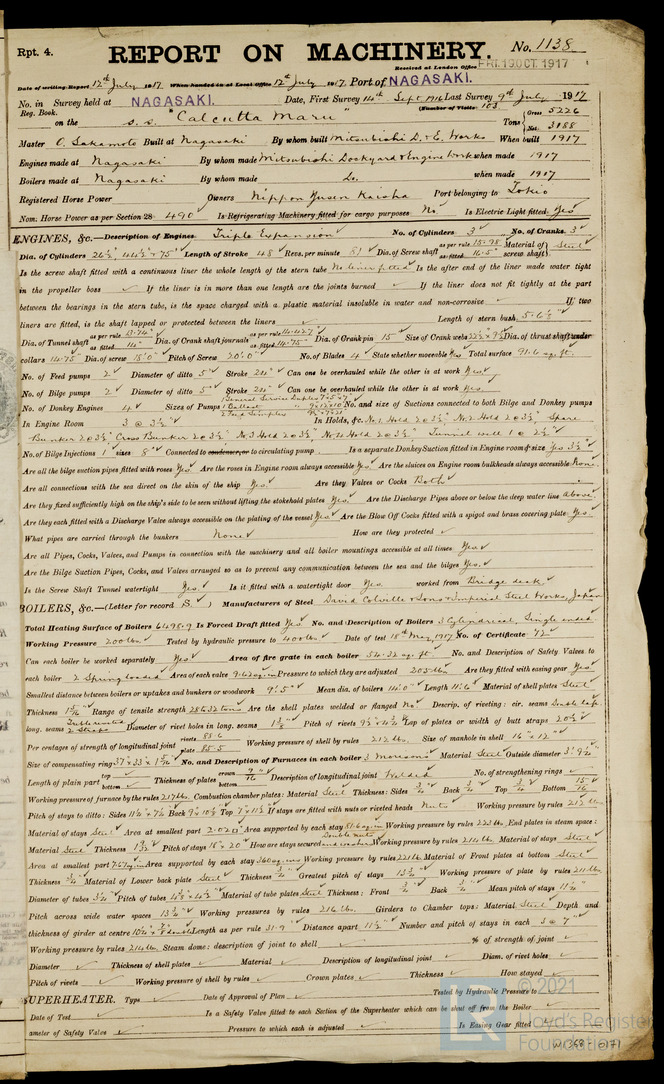 Rpt. 4.
REPORT ON MACHINERY. No. 1138
Received at London Office FRI. 19 OCT. 1917
Date of writing Report 12th July 1917 When handed in at Local Office 12th July 1917. Port of NAGASAKI.
No. in Survey held at NAGASAKI. Date, First Survey 14th Sept 1916 Last Survey 9th July 1917
Reg. Book. (Number of Visits 103
on the S.S. "Calcutta Maru" Tons { Gross 5226 Net 3188
Master O. Sakamoto Built at Nagasaki By whom built Mitsubishi D. & E. Works When built 1917
Engines made at Nagasaki By whom made Mitsubishi Dockyard & Engine Works when made 1917
Boilers made at Nagasaki By whom made Do. when made 1917
Registered Horse Power Owners Nippon Yusen Kaisha Port belonging to Tokio
Nom. Horse Power as per Section 28 490 Is Refrigerating Machinery fitted for cargo purposes No Is Electric Light fitted Yes
ENGINES, &c.—Description of Engines Triple Expansion No. of Cylinders 3 No. of Cranks 3
Dia. of Cylinders Length of Stroke 48 Revs. per minute 81 Dia. of Screw shaft as per rule 15.98 as fitted 16.5 Material of screw shaft Steel
Is the screw shaft fitted with a continuous liner the whole length of the stern tube No liner fitted Is the after end of the liner made water tight
in the propeller boss If the liner is in more than one length are the joints burned If the liner does not fit tightly at the part
between the bearings in the stern tube, is the space charged with a plastic material insoluble in water and non-corrosive If two
liners are fitted, is the shaft lapped or protected between the liners Length of stern bush 5'-6½"
Dia. of Tunnel shaft as per rule 13.74 as fitted 14" Dia. of Crank shaft journals as per rule 14.427 as fitted 14.75" Dia. of Crank pin 15" Size of Crank webs Dia. of thrust shaft under
collars 14.75 Dia. of screw 18'0" Pitch of Screw 20'0" No. of Blades 4 State whether moveable Yes Total surface 91.6 sq. ft.
No. of Feed pumps 2 Diameter of ditto 5" Stroke 24" Can one be overhauled while the other is at work Yes
No. of Bilge pumps 2 Diameter of ditto 5" Stroke 24" Can one be overhauled while the other is at work Yes
No. of Donkey Engines 4 Sizes of Pumps No. and size of Suctions connected to both Bilge and Donkey pumps
In Engine Room 3 @ 3½" In Holds, &c. No. 1 Hold 2 @ 3½", No. 2 Hold 2 @ 3½", Spare
Bunker 2 @ 3½", Cross Bunker 2 @ 3½", No. 3 Hold 2 @ 3½", No. 4 Hold 2 @ 3½", Tunnel well 1 @ 2½"
No. of Bilge Injections 1 sizes 8" Connected to condenser, or to circulating pump Is a separate Donkey Suction fitted in Engine room & size Yes 3½"
Are all the bilge suction pipes fitted with roses Yes Are the roses in Engine room always accessible Yes Are the sluices on Engine room bulkheads always accessible None
Are all connections with the sea direct on the skin of the ship Yes Are they Valves or Cocks Both
Are they fixed sufficiently high on the ship's side to be seen without lifting the stokehold plates Yes Are the Discharge Pipes above or below the deep water line Above
Are they each fitted with a Discharge Valve always accessible on the plating of the vessel Yes Are the Blow Off Cocks fitted with a spigot and brass covering plate Yes
What pipes are carried through the bunkers None How are they protected
Are all Pipes, Cocks, Valves, and Pumps in connection with the machinery and all boiler mountings accessible at all times Yes
Are the Bilge Suction Pipes, Cocks, and Valves arranged so as to prevent any communication between the sea and the bilges Yes
Is the Screw Shaft Tunnel watertight Yes Is it fitted with a watertight door Yes worked from Bridge deck
BOILERS, &c.—(Letter for record S.) Manufacturers of Steel David Colville & Sons & Imperial Steel Works, Japan
Total Heating Surface of Boilers 6498.9 Is Forced Draft fitted Yes No. and Description of Boilers 3 Cylindrical, Single ended
Working Pressure 200 lbs Tested by hydraulic pressure to 400 lbs Date of test 18th May 1917 No. of Certificate 42
Can each boiler be worked separately Yes Area of fire grate in each boiler 54.32 sq. ft No. and Description of Safety Valves to
each boiler 2 Spring loaded Area of each valve 9.62 sq. in Pressure to which they are adjusted 205 lbs Are they fitted with easing gear Yes
Smallest distance between boilers or uptakes and bunkers or woodwork 9'.5" Mean dia. of boilers 14'.0" Length 11'.6" Material of shell plates Steel
Thickness Range of tensile strength 28 to 32 tons Are the shell plates welded or flanged No Descrip. of riveting: cir. seams Double lap.
long. seams Diameter of rivet holes in long. seams Pitch of rivets Lap of plates or width of butt straps 20½"
Per centages of strength of longitudinal joint rivets 88.6 plate 85.5 Working pressure of shell by rules 212 lbs. Size of manhole in shell 16" x 12"
Size of compensating ring No. and Description of Furnaces in each boiler 3 Morison Material Steel Outside diameter 3'. 9¾"
Length of plain part top bottom Thickness of plates crown bottom Description of longitudinal joint Welded No. of strengthening rings
Working pressure of furnace by the rules 217 lbs. Combustion chamber plates: Material Steel Thickness: Sides ¾" Back ¾" Top ¾" Bottom 15/16"
Pitch of stays to ditto: Sides Back Top If stays are fitted with nuts or riveted heads Nuts Working pressure by rules 212 lbs
Material of stays Steel Area at smallest part 2.020" Area supported by each stay Working pressure by rules 223 lbs. End plates in steam space:
Material Steel Thickness Pitch of stays 18" x 20" How are stays secured Double nuts and washers Working pressure by rules 211 lbs. Material of stays Steel
Area at smallest part Area supported by each stay 360 sq. ins Working pressure by rules 221 lbs. Material of Front plates at bottom Steel
Thickness ¾" Material of Lower back plate Steel Thickness Greatest pitch of stays 13¾" Working pressure of plate by rules 211 lbs.
Diameter of tubes 3¼" Pitch of tubes Material of tube plates Steel Thickness: Front ¾" Back ¾" Mean pitch of stays
Pitch across wide water spaces 13¾" Working pressures by rules 216 lbs. Girders to Chamber tops: Material Steel Depth and
thickness of girder at centre Length as per rule 31.9 Distance apart 11½" Number and pitch of stays in each 3 @ 7"
Working pressure by rules 214 lbs. Steam dome: description of joint to shell % of strength of joint
Diameter Thickness of shell plates Material Description of longitudinal joint Diam. of rivet holes
Pitch of rivets Working pressure of shell by rules Crown plates Thickness How stayed
SUPERHEATER. Type Date of Approval of Plan Tested by Hydraulic Pressure to
Date of Test Is a Safety Valve fitted to each Section of the Superheater which can be shut off from the Boiler
ameter of Safety Valve Pressure to which each is adjusted Is Easing Gear fitted
© 2021
LR Lloyd's Register
Foundation